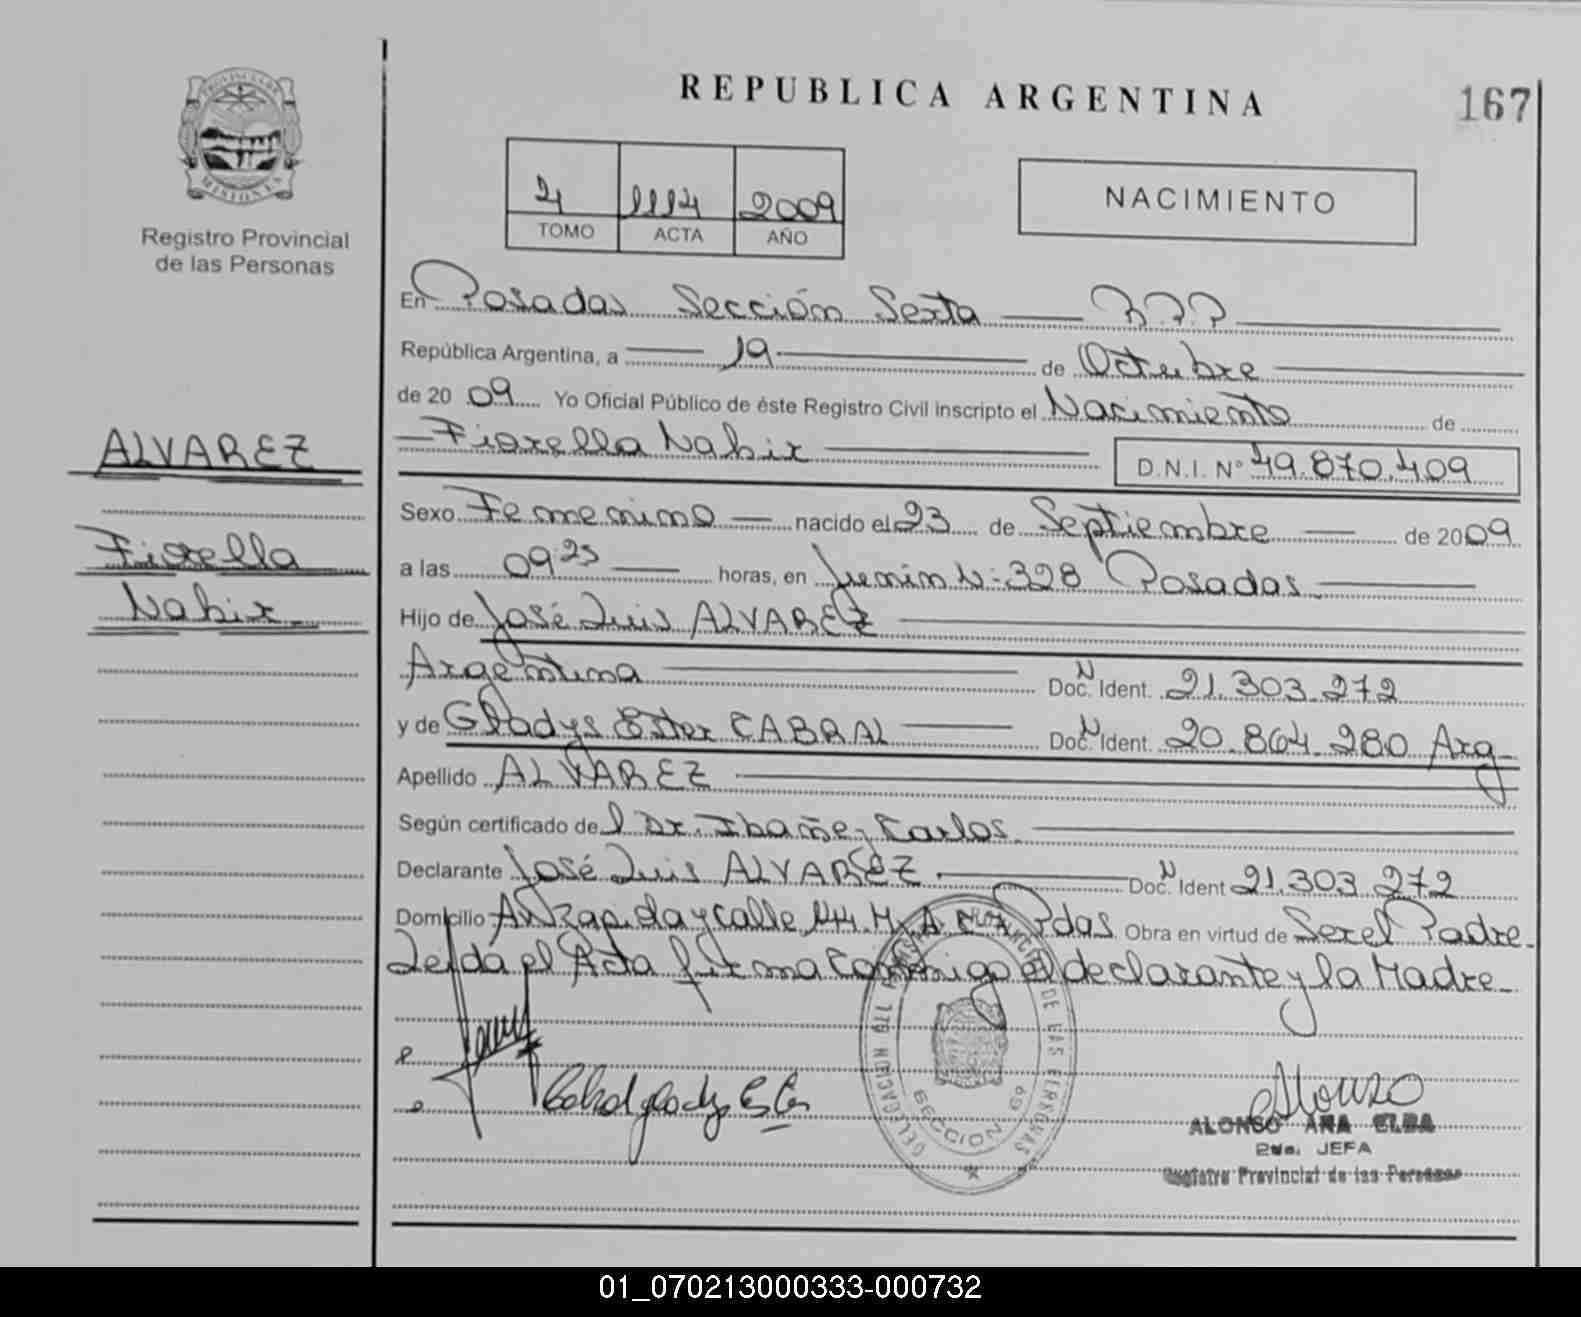 PROVINCIA DE
MISIONES
Registro Provincial
de las Personas
ALVAREZ
Fiorella
Nahir
REPUBLICA ARGENTINA
167
1114 2009
TOMO ACTA AÑO
NACIMIENTO
En Posadas Sección Sexta
República Argentina, a 19 de Octubre
de 2009 Yo Oficial Público de éste Registro Civil inscripto el Nacimiento de
Fiorella Nahir D.N.I. Nº 49.870.409
Sexo Femenino nacido el 23 de Septiembre de 2009
a las 09:25 horas, en Junin Nº 328 Posadas
Hijo de José Luis ALVAREZ
Argentina Doc. N Ident. 21.303.272
y de Gladys Ester CABRAL Doc. N Ident. 20.864.280 Arg
Apellido ALVAREZ
Según certificado del Dr. Ibañez Carlos
Declarante José Luis ALVAREZ Doc. N Ident 21.303.272
Domicilio y calle Pdas Obra en virtud de Ser el Padre
Leída el Acta firma conmigo el declarante y la Madre
DELEGACION SECCION 6ª
DE LAS PERSONAS
Alonso
ALONSO ANA ELBA
2da. JEFA
Registro Provincial de las Personas
01_070213000333-000732